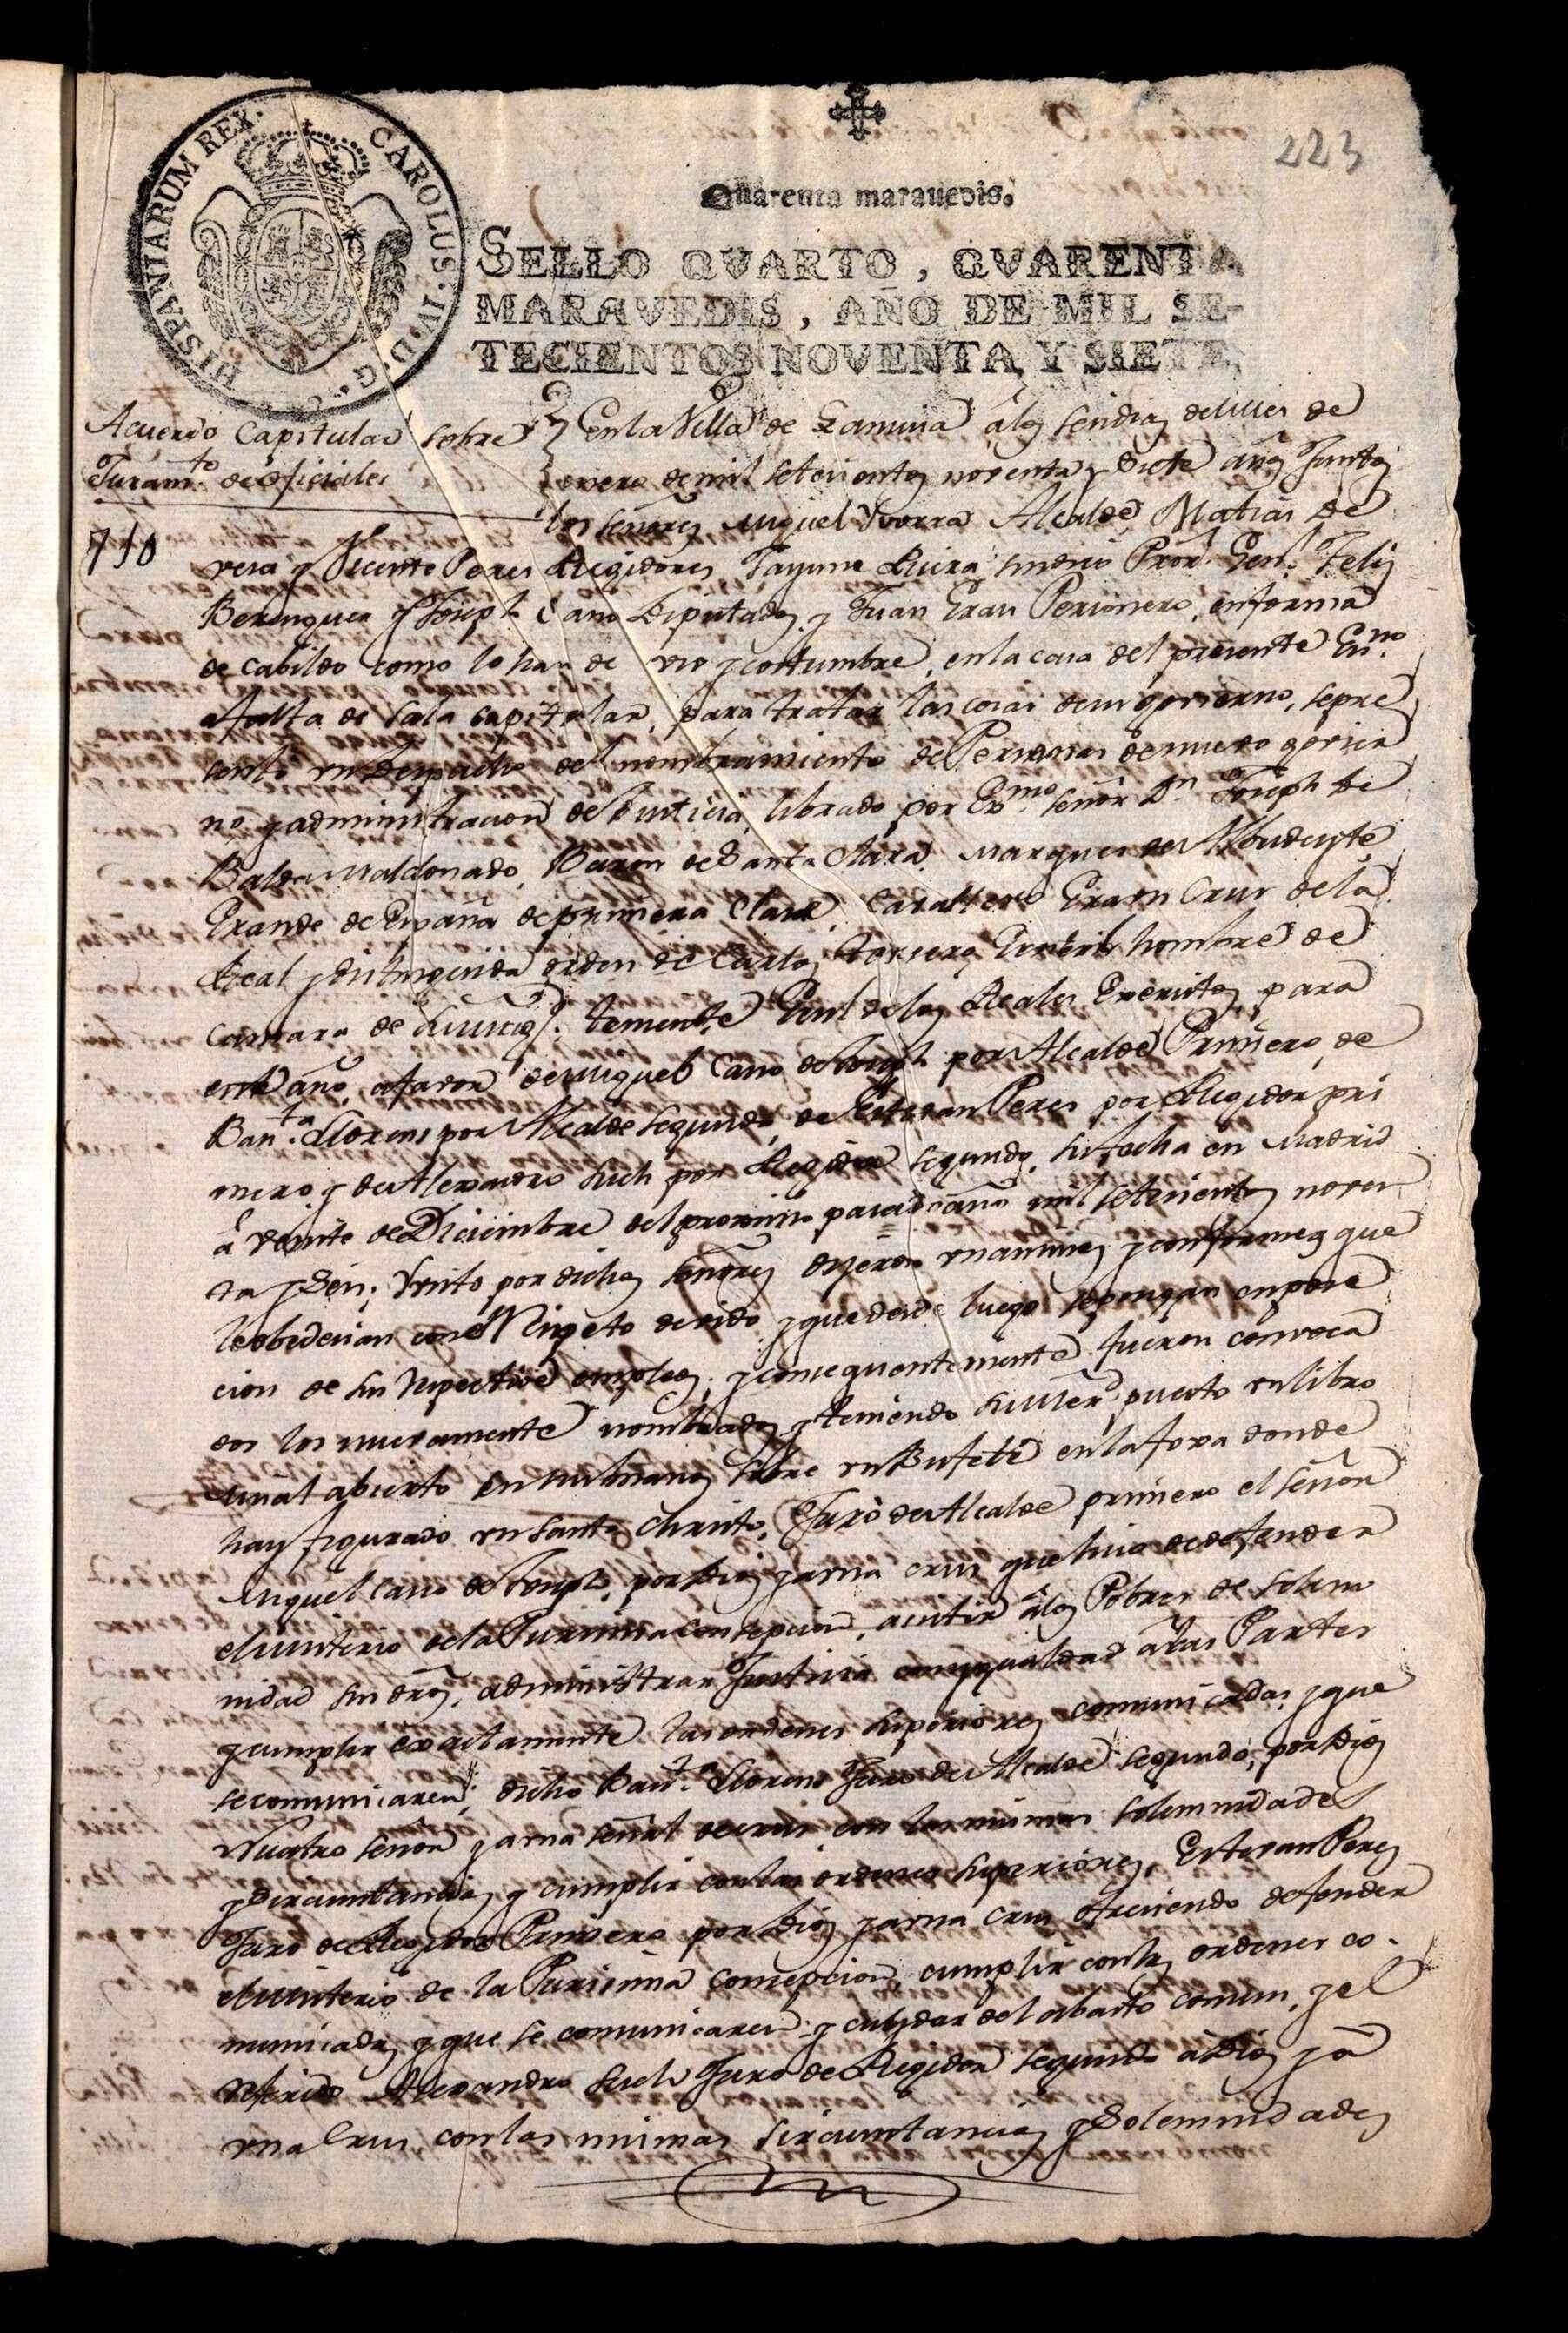 223
HISPANIARUM REX. CAROLUS. IV. D. G.
Quarenta maravedis.
SELLO QVARTO, QVARENTA
MARAVEDIS, AÑO DE MIL SE-
TECIENTOS NOVENTA Y SIETE.
Acuerdo Capitular sobre
Juramto. de oficiales
710
en la Villa de a los seis dias del mes de
enero de mil setecientos noventa y siete años Juntos
los señores Miguel Yvorra Alcalde Matias de
vera y Vicente Peres Regidores Jayme sindico Pror. Genl. Felis
Berenguer y Joseph Cano Diputados y Juan Grau Personero, en forma
de Cabildo como lo han de uso y costumbre, en la casa del presente Esno.
a falta de sala capitular, para tratar las cosas de su govierno, se pre
sento un Despacho del nombramiento de Personas de nuevo govier
no, y administracion de Justicia, librado por Exmo. señor Dn. Joseph de
Balda Maldonado, Baron de Santa Clara, Marques de Albudeyte
Grande de España de primera Clase, Cavallero Gran Crus de la
Real y distinguida orden de Carlos tercero, Gentil hombre de
Camara de su Magd. teniente Genl. de los Reales Exercitos para
este año, a favor de Miguel Cano de Joseph por Alcalde Primero, de
Bauta. Llorens por Alcalde segundo, de Estevan Peres por Regidor pri
mero, y de Alexandro Such por Regidor segundo, su fecha en Madrid
a veinte de Diciembre del proximo pasado año mil setecientos noven
ta y seis; Visto por dichos señores dijeron unanimes y conformes que
le obedecian con el respeto devido, y que desde luego se pongan en pose
cion de sus respective empleos; y consequentemente fueron convoca
dos los nuevamente nombrados, y teniendo su Merd. puesto un libro
misal abierto en sus manos sobre un Bufete en la foxa donde
hay figurado un santo Christo, Juro de Alcalde primero el señor
Miguel Cano de Joseph, por Dios y a una crus que hiso de defender
el misterio de la Purisima Concepcion, acistir a los Pobres de solem
nidad sin dros, administrar Justicia con igualdad a las Partes
y cumplir exactamente las ordenes superiores comunicadas, y que
se comunicaren; dicho Bauta. Llorens Juro de Alcalde segundo, por Dios
Nuestro señor y a una señal de crus con las mismas solemnidades
y circunstancias, y cumplir con las ordenes superiores, Estevan Peres
Juro de Regidor Primero por Dios y a una crus ofreciendo defender
el misterio de la Purisima Concepcion, cumplir con las ordenes co-
municadas y que se comunicaren, y cuydar del abasto comun, y el
referido Alexandro Such Juro de Regidor segundo a Dios y a
una Crus con las mismas sircunstancias y Solemnidades